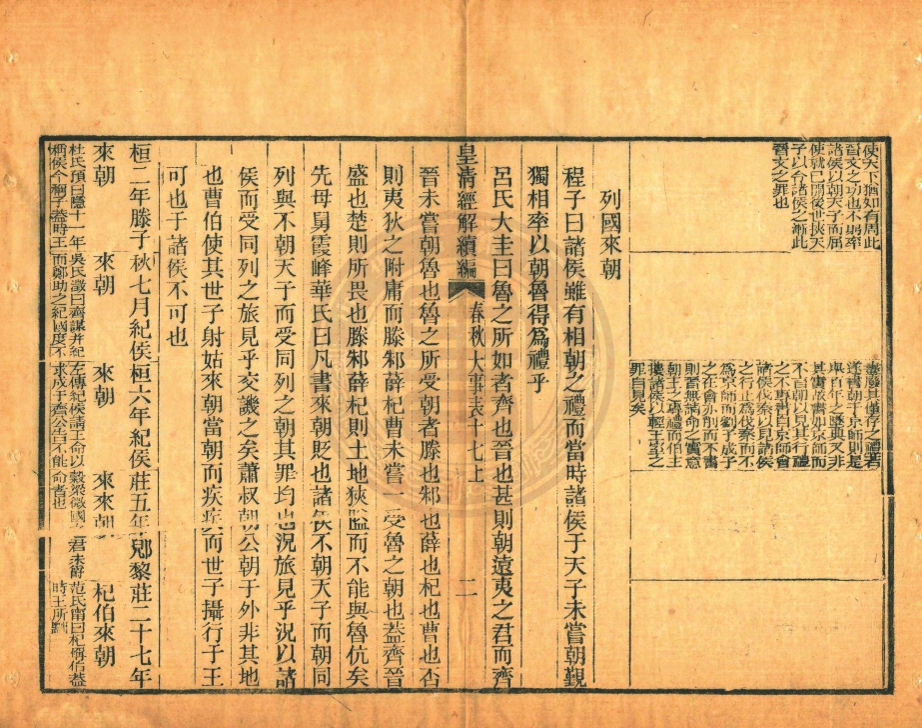 使天下猶知有周此
晉文之功也不躬率
諸侯以朝天子而屈
使就已開後世挾天
子以令諸侯之漸此
晉文之罪也
廢其僅存之禮若
遂書朝于京師則是
與百年之墜典又非
其實故書如京師而
不言朝以見其行禮
之不專書自京師會
諸侯伐秦以見諸侯
之行止為伐秦而不
為京師而劉子成子
之在會亦削而不書
則晉無請命之實意
朝王之專禮而伯主
摟諸侯以輕王室之
罪自見矣
列國來朝
程子曰諸侯雖有相朝之禮而當時諸侯于天子未嘗朝覲
獨相率以朝魯得爲禮乎
呂氏大圭曰魯之所如者齊也晉也甚則朝遠夷之君而齊
皇淸經解續編 春秋大事表十七上 二
晉未嘗朝魯也魯之所受朝者滕也邾也薛也杞也曹也否
則夷狄之附庸而滕邾薛杞曹未嘗一受魯之朝也蓋齊晉
盛也楚則所畏也滕邾薛杞則土地狹隘而不能與魯伉矣
先母舅霞峰華氏曰凡書來朝貶也諸侯不朝天子而朝同
列與不朝天子而受同列之朝其罪均也況旅見乎況以諸
侯而受同列之旅見乎交譏之矣蕭叔朝公朝于外非其地
也曹伯使其世子射姑來朝當朝而疾疾而世子攝行于王
可也于諸侯不可也
桓二年滕子
來朝
杜氏預曰隱十一年
稱侯今稱子蓋時王
秋七月紀侯
來朝
吳氏澂曰齊謀并紀
而鄭助之紀國度不
桓六年紀侯
來朝
左傳紀侯請王命以
求成于齊公告不能
莊五年郳黎
來來朝
穀梁微國之君未爵
命者也
莊二十七年
杞伯來朝
范氏甯曰杞稱伯蓋
時王所黜